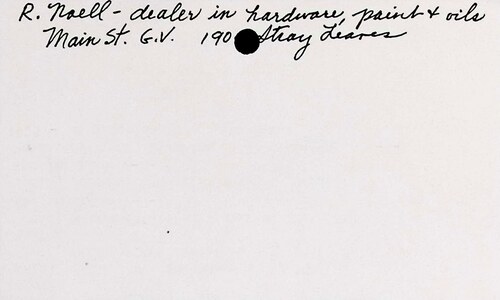 R. Noell - dealer in hardware, paint & oils
Main St. G.V. 190 Stray Leaves